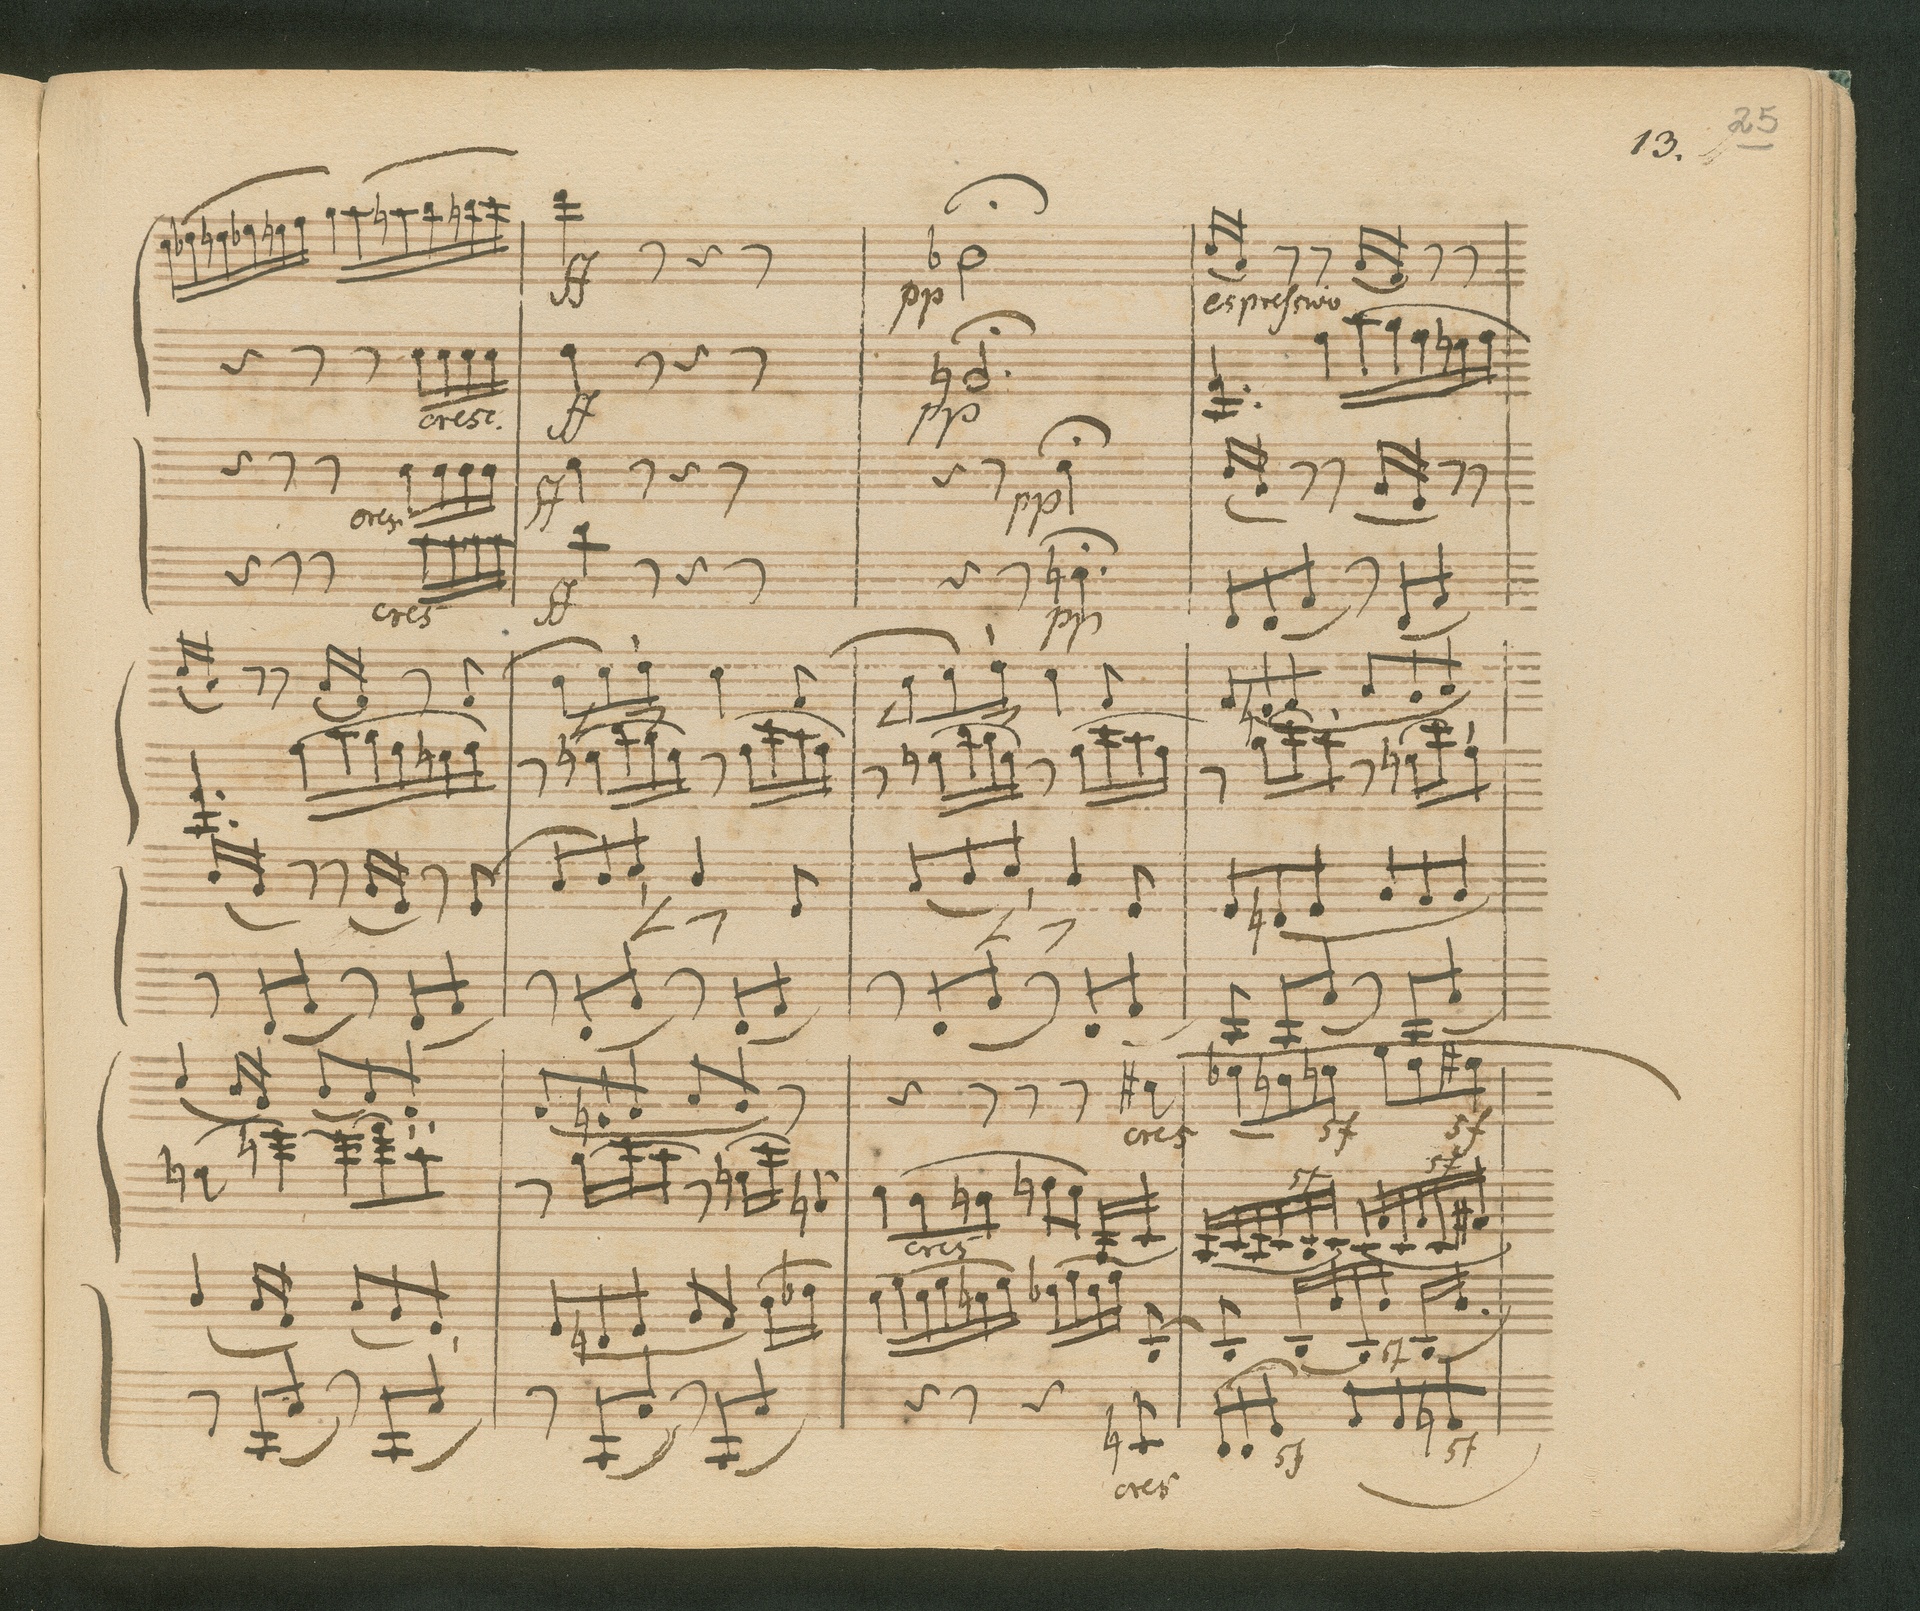 25
13.
ff
pp
espressivo
cresc.
ff
pp
cres
ff
pp
cres
ff
pp
cres
sf
sf
cres
sf
sf
sf
cres
sf
sf